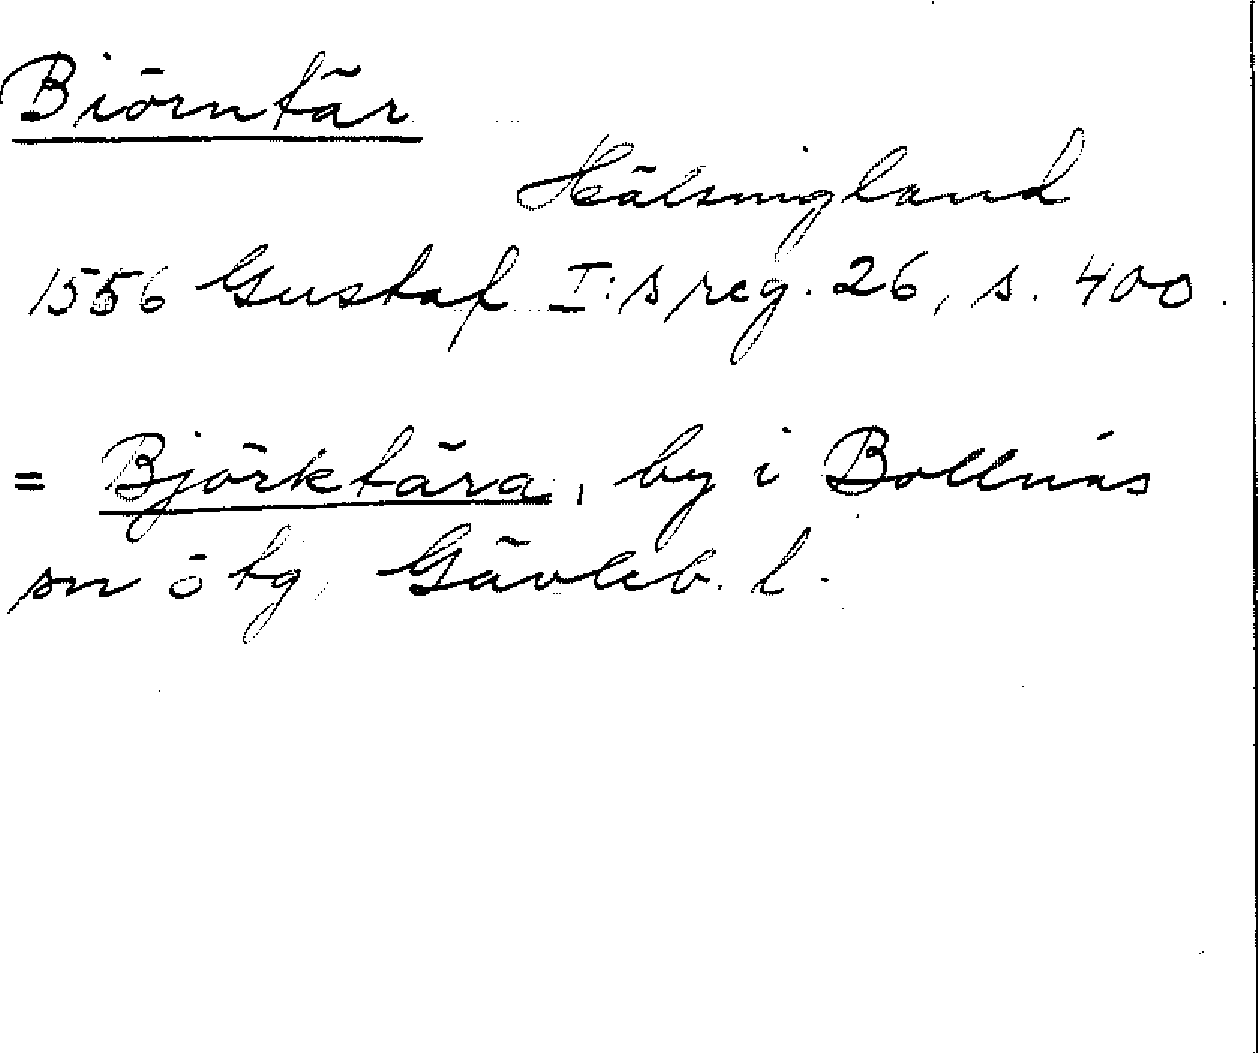 Biörntär
Hälsingland
1556 Gustaf I:s reg. 26, s. 400.
= Björktära, by i Bollnäs
sn o tg, Gävleb. l.